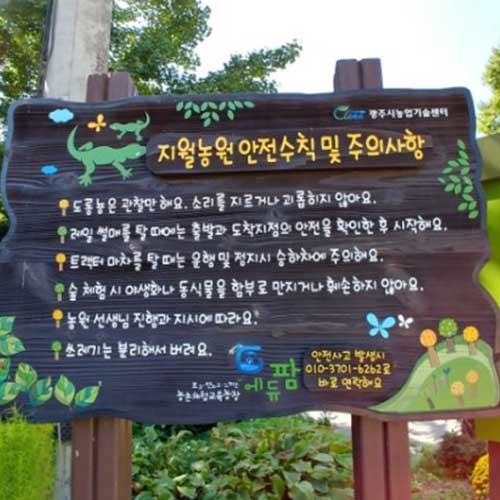 Clean 광주시농업기술센터
지월농원 안전수칙 및 주의사항
도롱뇽은 관찰만 해요. 소리를 지르거나 괴롭히지 않아요.
레일 썰매를 탈 때에는 출발과 도착지점의 안전을 확인한 후 시작해요.
트랙터 마차를 탈 때는 운행 및 정지시 승하차에 주의해요.
숲 체험 시 야생화나 동식물을 함부로 만지거나 훼손하지 않아요.
농원 선생님 진행과 지시에 따라요.
쓰레기는 분리해서 버려요.
농촌체험교육농장
에듀팜
안전사고 발생시
010-3701-6262로
바로 연락해요